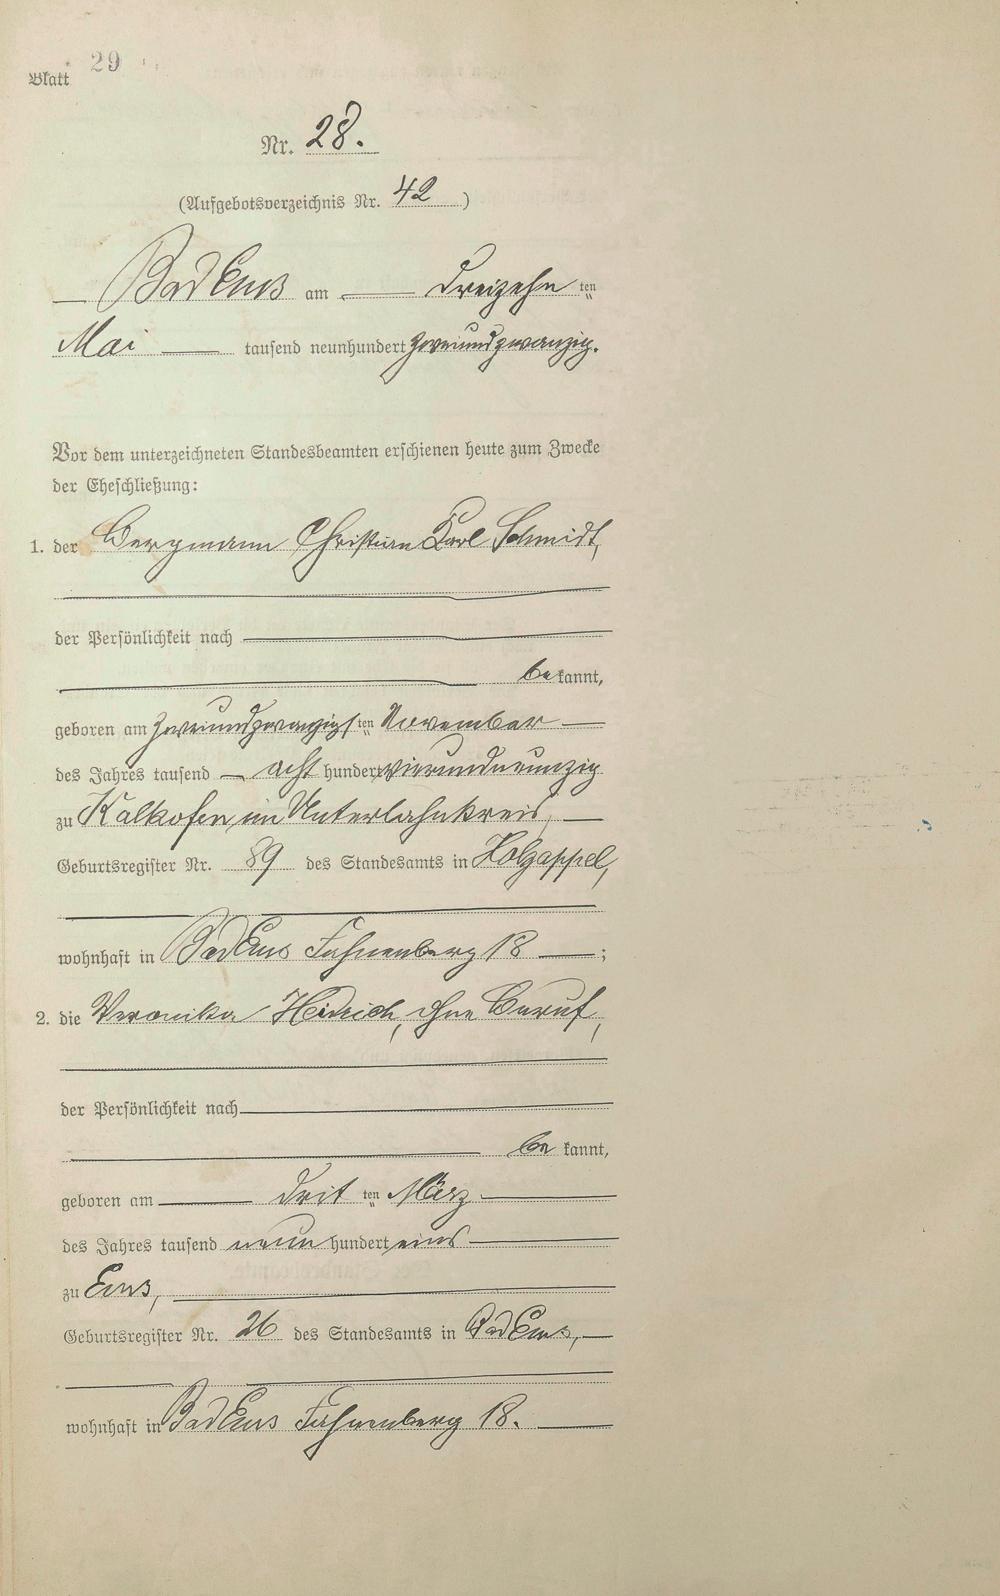 Blatt 29
Nr. 28.
(Aufgebotsverzeichnis Nr. 42)
Bad Ems am dreizehn ten
Mai tausend neunhundert zweiundzwanzig.
Vor dem unterzeichneten Standesbeamten erschienen heute zum Zwecke
der Eheschließung:
1. der Bergmann Christian Karl Schmidt,
der Persönlichkeit nach
bekannt,
geboren am zweiundzwanzigsten November
des Jahres tausend acht hundert vierundneunzig
zu Kalkofen im Unterlahnkreis,
Geburtsregister Nr. 89 des Standesamts in Holzappel,
wohnhaft in Bad Ems Fahnenberg 18 ;
2. die Veronika ohne Beruf,
der Persönlichkeit nach
be kannt,
geboren am drit ten März
des Jahres tausend neun hundert eins
zu Ems,
Geburtsregister Nr. 26 des Standesamts in Bad Ems,
wohnhaft in Bad Ems Fahnenberg 18.